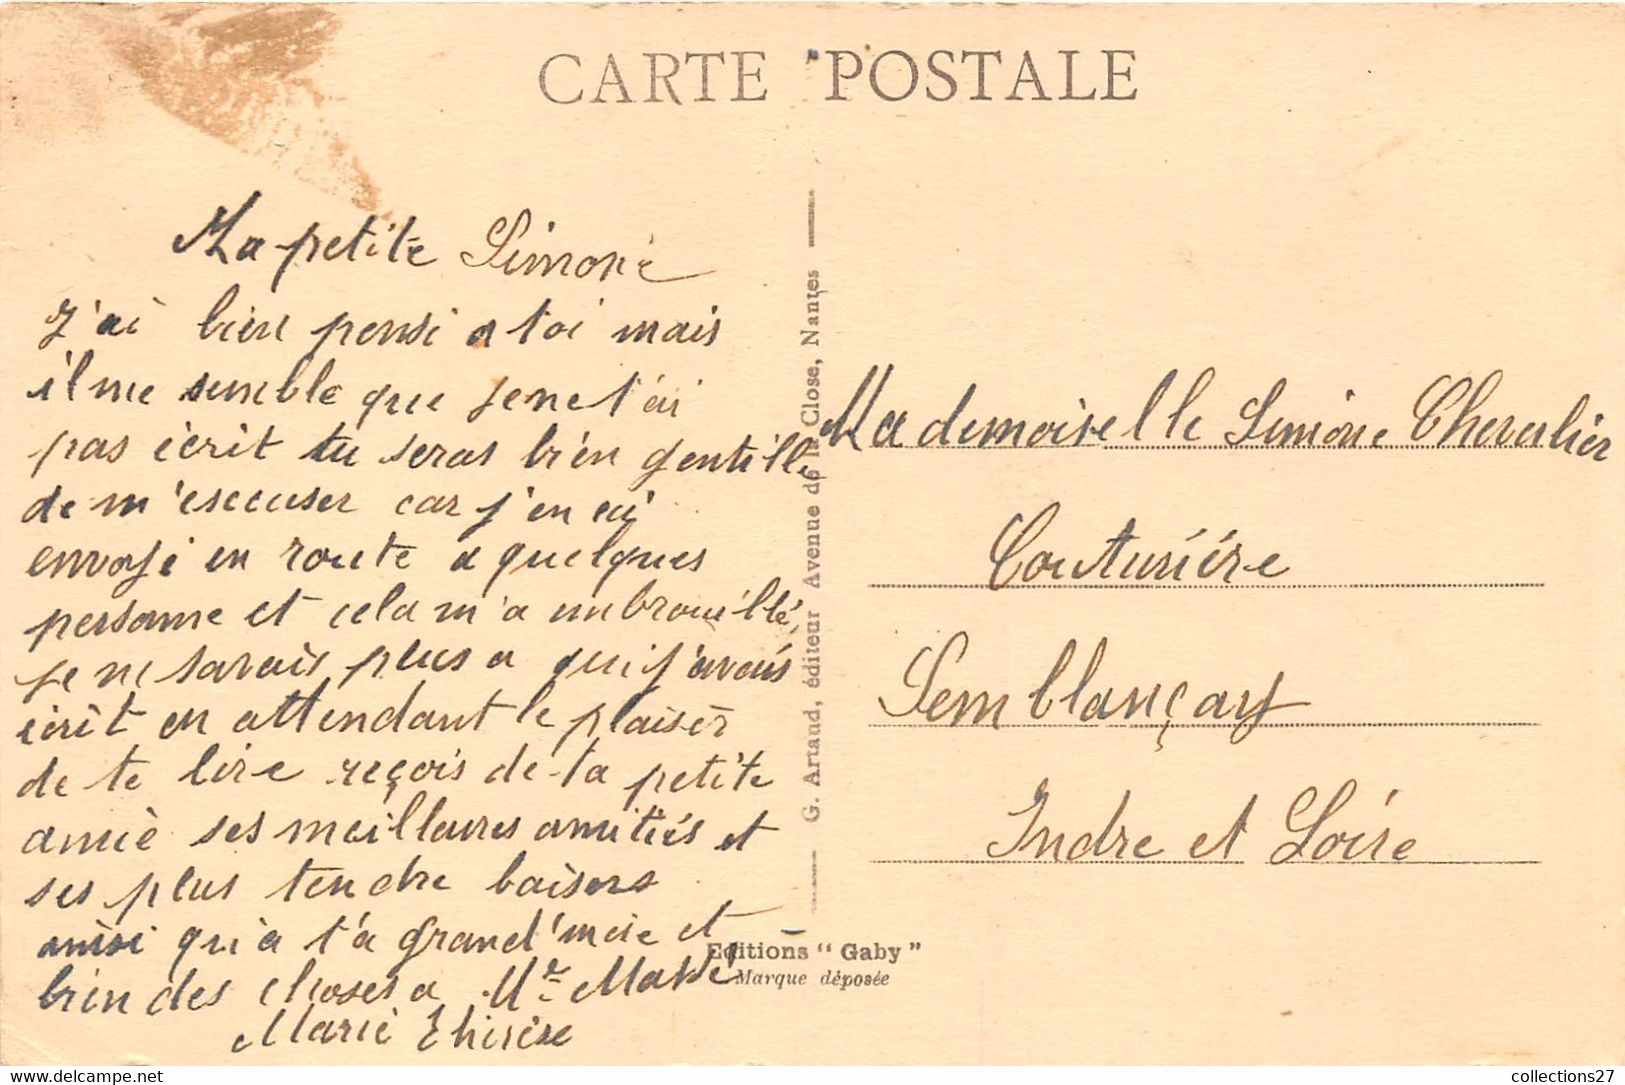 CARTE POSTALE
Ma petite Simone
J'ai bien pensé a toi mais
il me semble que je ne t'ai
pas écrit tu seras bien gentille
de m'escuser car j'en ai
envoyé en route a quelques
personne et cela m'a embrouillé
je ne savais plus a qui j'avais
écrit en attendant le plaisir
de te lire reçois de ta petite
amie ses meillaures amitiés et
ses plus tendre baisers
ainsi qu'a t'a grand'mère et
bien des choses a Mr
Marie Thérèse
G. Artaud, éditeur Avenue de la Close, Nantes
Editions "Gaby"
Marque déposée
Mademoiselle Simone Chevalier
Couturière
Semblançay
Indre et Loire
collections27